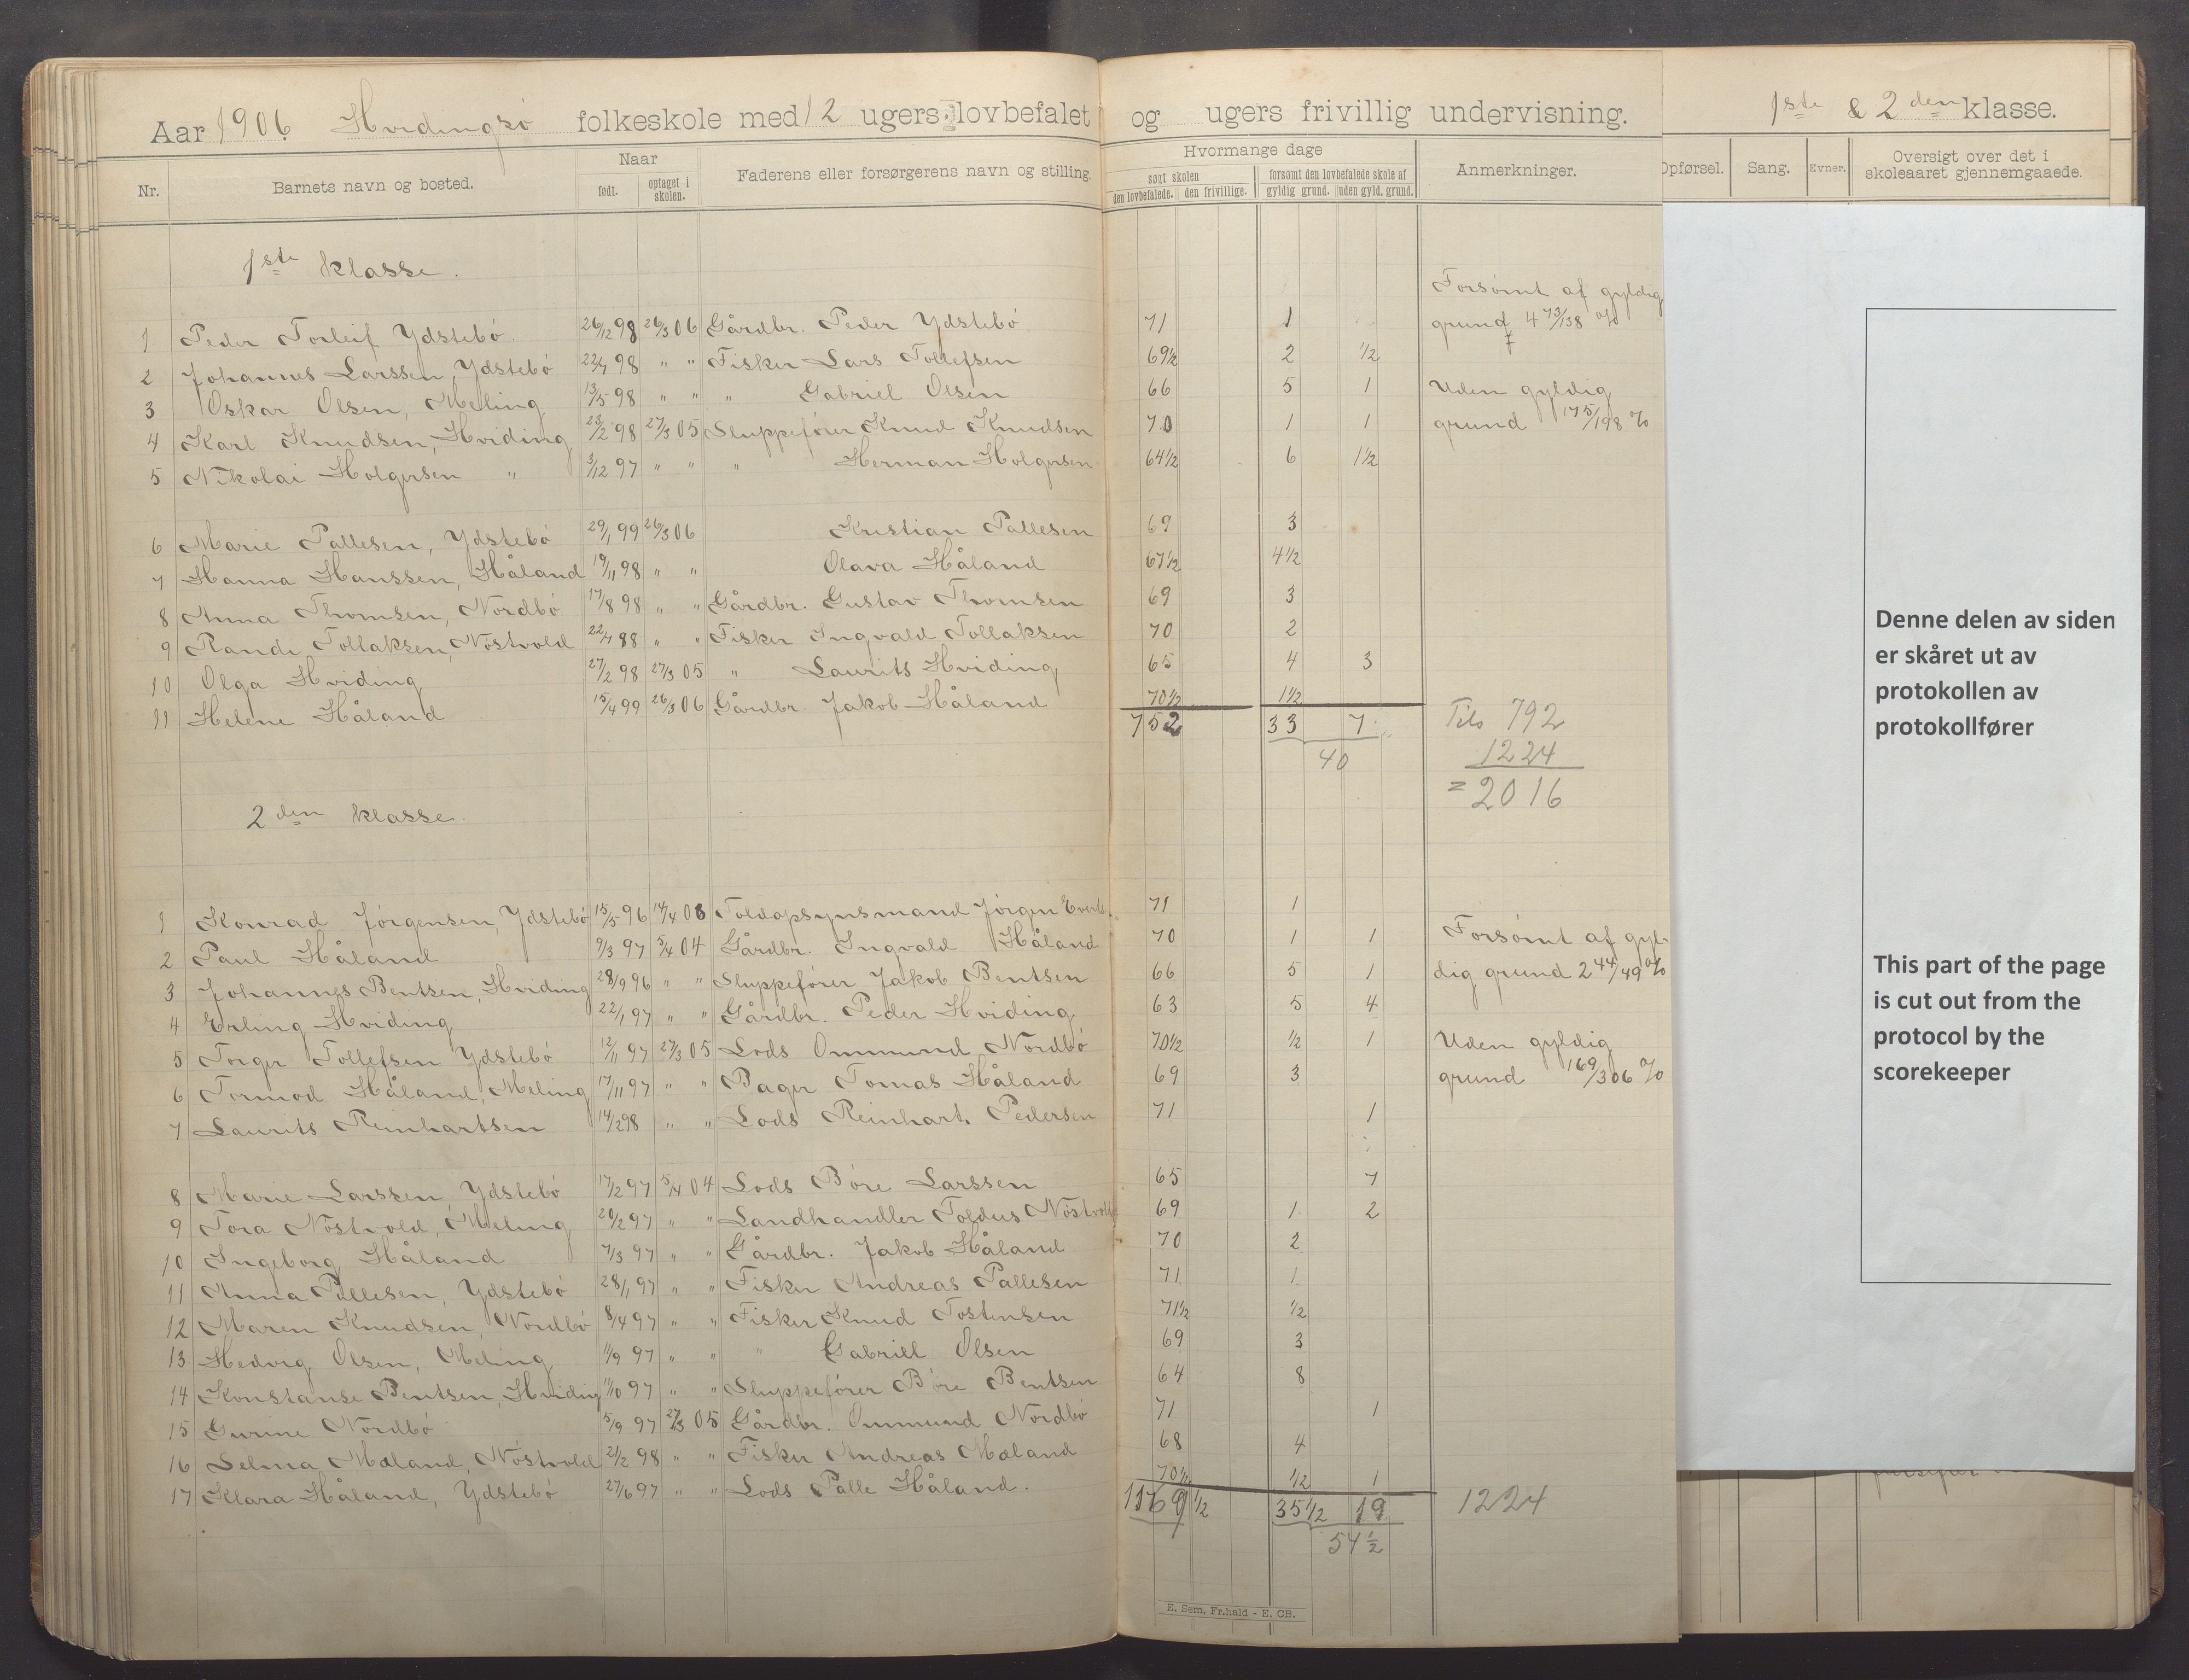 Aar 1906 Hvidingsö folkeskole med 12 ugers lovbefalet og ugers frivillig undervisning. 1ste & 2den klasse.
Nr. Barnets navn og bosted. Naar født. optaget i skolen. Faderens eller forsørgerens navn og stilling. Hvormange dage søgt skolen den lovbefalede. den frivillige. forsømt den lovbefalede skole af gyldig grund. uden gyld. grund. Anmerkninger. Opførsel. Sang. Evner. Oversigt over det i skoleaaret gjennemgaaede.
1ste klasse.
Forsömt af gyldig
1 Peder Torleif Ydstebö 26/12 98 26/3 06 Gårdbr. Peder Ydstebö 71 1 grund 4 73/138 %
2 Johannes Larssen, Ydstebö 22/7 98 " " Fisker Lars Tollefsen 69½ 2 ½
3 Oskar Olsen, Meling 13/5 98 " " " Gabriel Olsen 66 5 1 Uden gyldig
4 Karl Knudsen, Hviding 23/2 98 27/3 05 Sluppefører Knud Knudsen 70 1 1 grund 175/198 %
5 Nikolai Holgersen " 3/12 97 " " " Herman Holgersen 64½ 6 1½
6 Marie Pallesen, Ydstebö 29/1 99 26/3 06 Kristian Pallesen 69 3
7 Hanna Hanssen, Håland 19/11 98 " " Olava Håland 67½ 4½
8 Anna Thomsen, Nordbö 17/8 98 " " Gårdbr. Gustav Thomsen 69 3
9 Randi Tollaksen, Nöstvold 22/7 88 " " Fisker Ingvald Tollaksen 70 2
10 Olga Hviding 27/2 98 27/3 05 " Laurits Hviding 65 4 3
11 Helene Håland 15/4 99 26/3 06 Gårdbr. Jakob Håland 70½ 1½
752 33 7 Tils 792
40 1224
= 2016
2den klasse.
1 Konrad Jörgensen, Ydstebö 15/5 96 14/4 03 Toldopsynsmand Jörgen Everts. 71 1
2 Paul Håland 9/3 97 5/4 04 Gårdbr. Ingvald Håland 70 1 1 Forsömt af gyl-
3 Johannes Bentsen, Hviding 28/9 96 " " Sluppefører Jakob Bentsen 66 5 1 dig grund 2 44/49 %
4 Erling Hviding 22/1 97 " " Gårdbr. Peder Hviding 63 5 4
5 Torger Tollefsen Ydstebö 12/11 97 27/3 05 Lods Ommund Nordbö 70½ ½ 1 Uden gyldig
6 Tormod Håland, Meling 17/11 97 " " Bager Tomas Håland 69 3 grund 169/306 %
7 Laurits Reinhartsen 14/2 98 " " Lods Reinhart. Pedersen 71 1
8 Marie Larssen Ydstebö 17/2 97 5/4 04 Lods Böre Larssen 65 7
9 Tora Nöstvold, Meling 20/2 97 " " Landhandler Toldus Nöstvold 69 1 2
10 Ingeborg Håland 7/3 97 " " Gårdbr. Jakob Håland 70 2
11 Anna Pallesen, Ydstebö 28/1 97 " " Fisker Andreas Pallesen 71 1
12 Maren Knudsen, Nordbö 8/4 97 " " Fisker Knud Tostensen 71½ ½
13 Hedvig Olsen, Meling 11/9 97 " " " Gabriell Olsen 69 3
14 Konstanse Bentsen, Hviding 11/10 97 " " Sluppefører Böre Bentsen 64 8
15 Gurine Nordbö 5/9 97 27/3 05 Gårdbr. Ommund Nordbö 71 1
16 Selma Mæland, Nöstvold 21/2 98 " " Fisker Andreas Mæland 68 4
17 Klara Håland, Ydstebö 27/6 97 " " Lods Palle Håland. 70½ ½ 1
1169½ 35½ 19 1224
54½
E. Sem, Fr.hald - E. CB.
Denne delen av siden
er skåret ut av
protokollen av
protokollfører
This part of the page
is cut out from the
protocol by the
scorekeeper